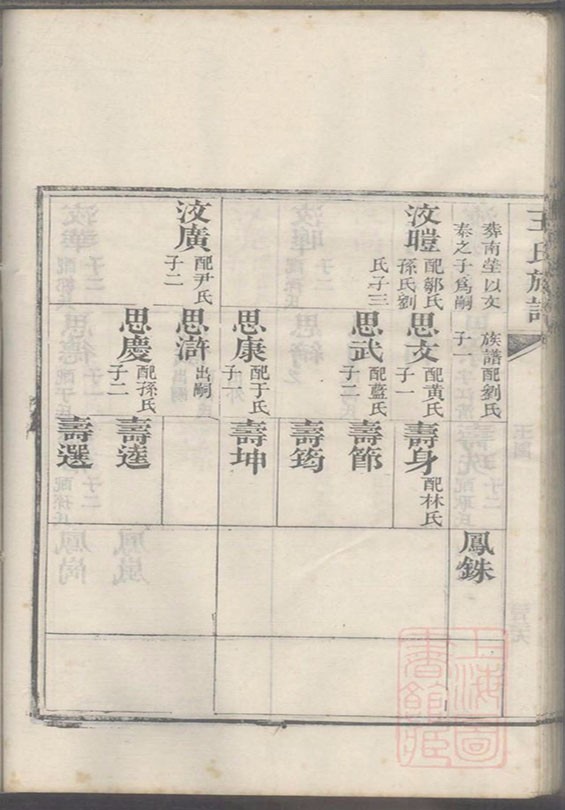 王氏族譜
葬南塋以文
泰之子為嗣
族譜配劉氏
子一
鳳銖
汶暟
配鄒氏
孫氏劉
氏子三
思文
配黃氏
子一
壽身
配林氏
思武
配藍氏
子二
壽節
壽筠
思康
配于氏
子一
壽坤
汶廣
配尹氏
子二
思滸
出嗣
思慶
配孫氏
子二
壽逵
壽選
上海圖
書館藏